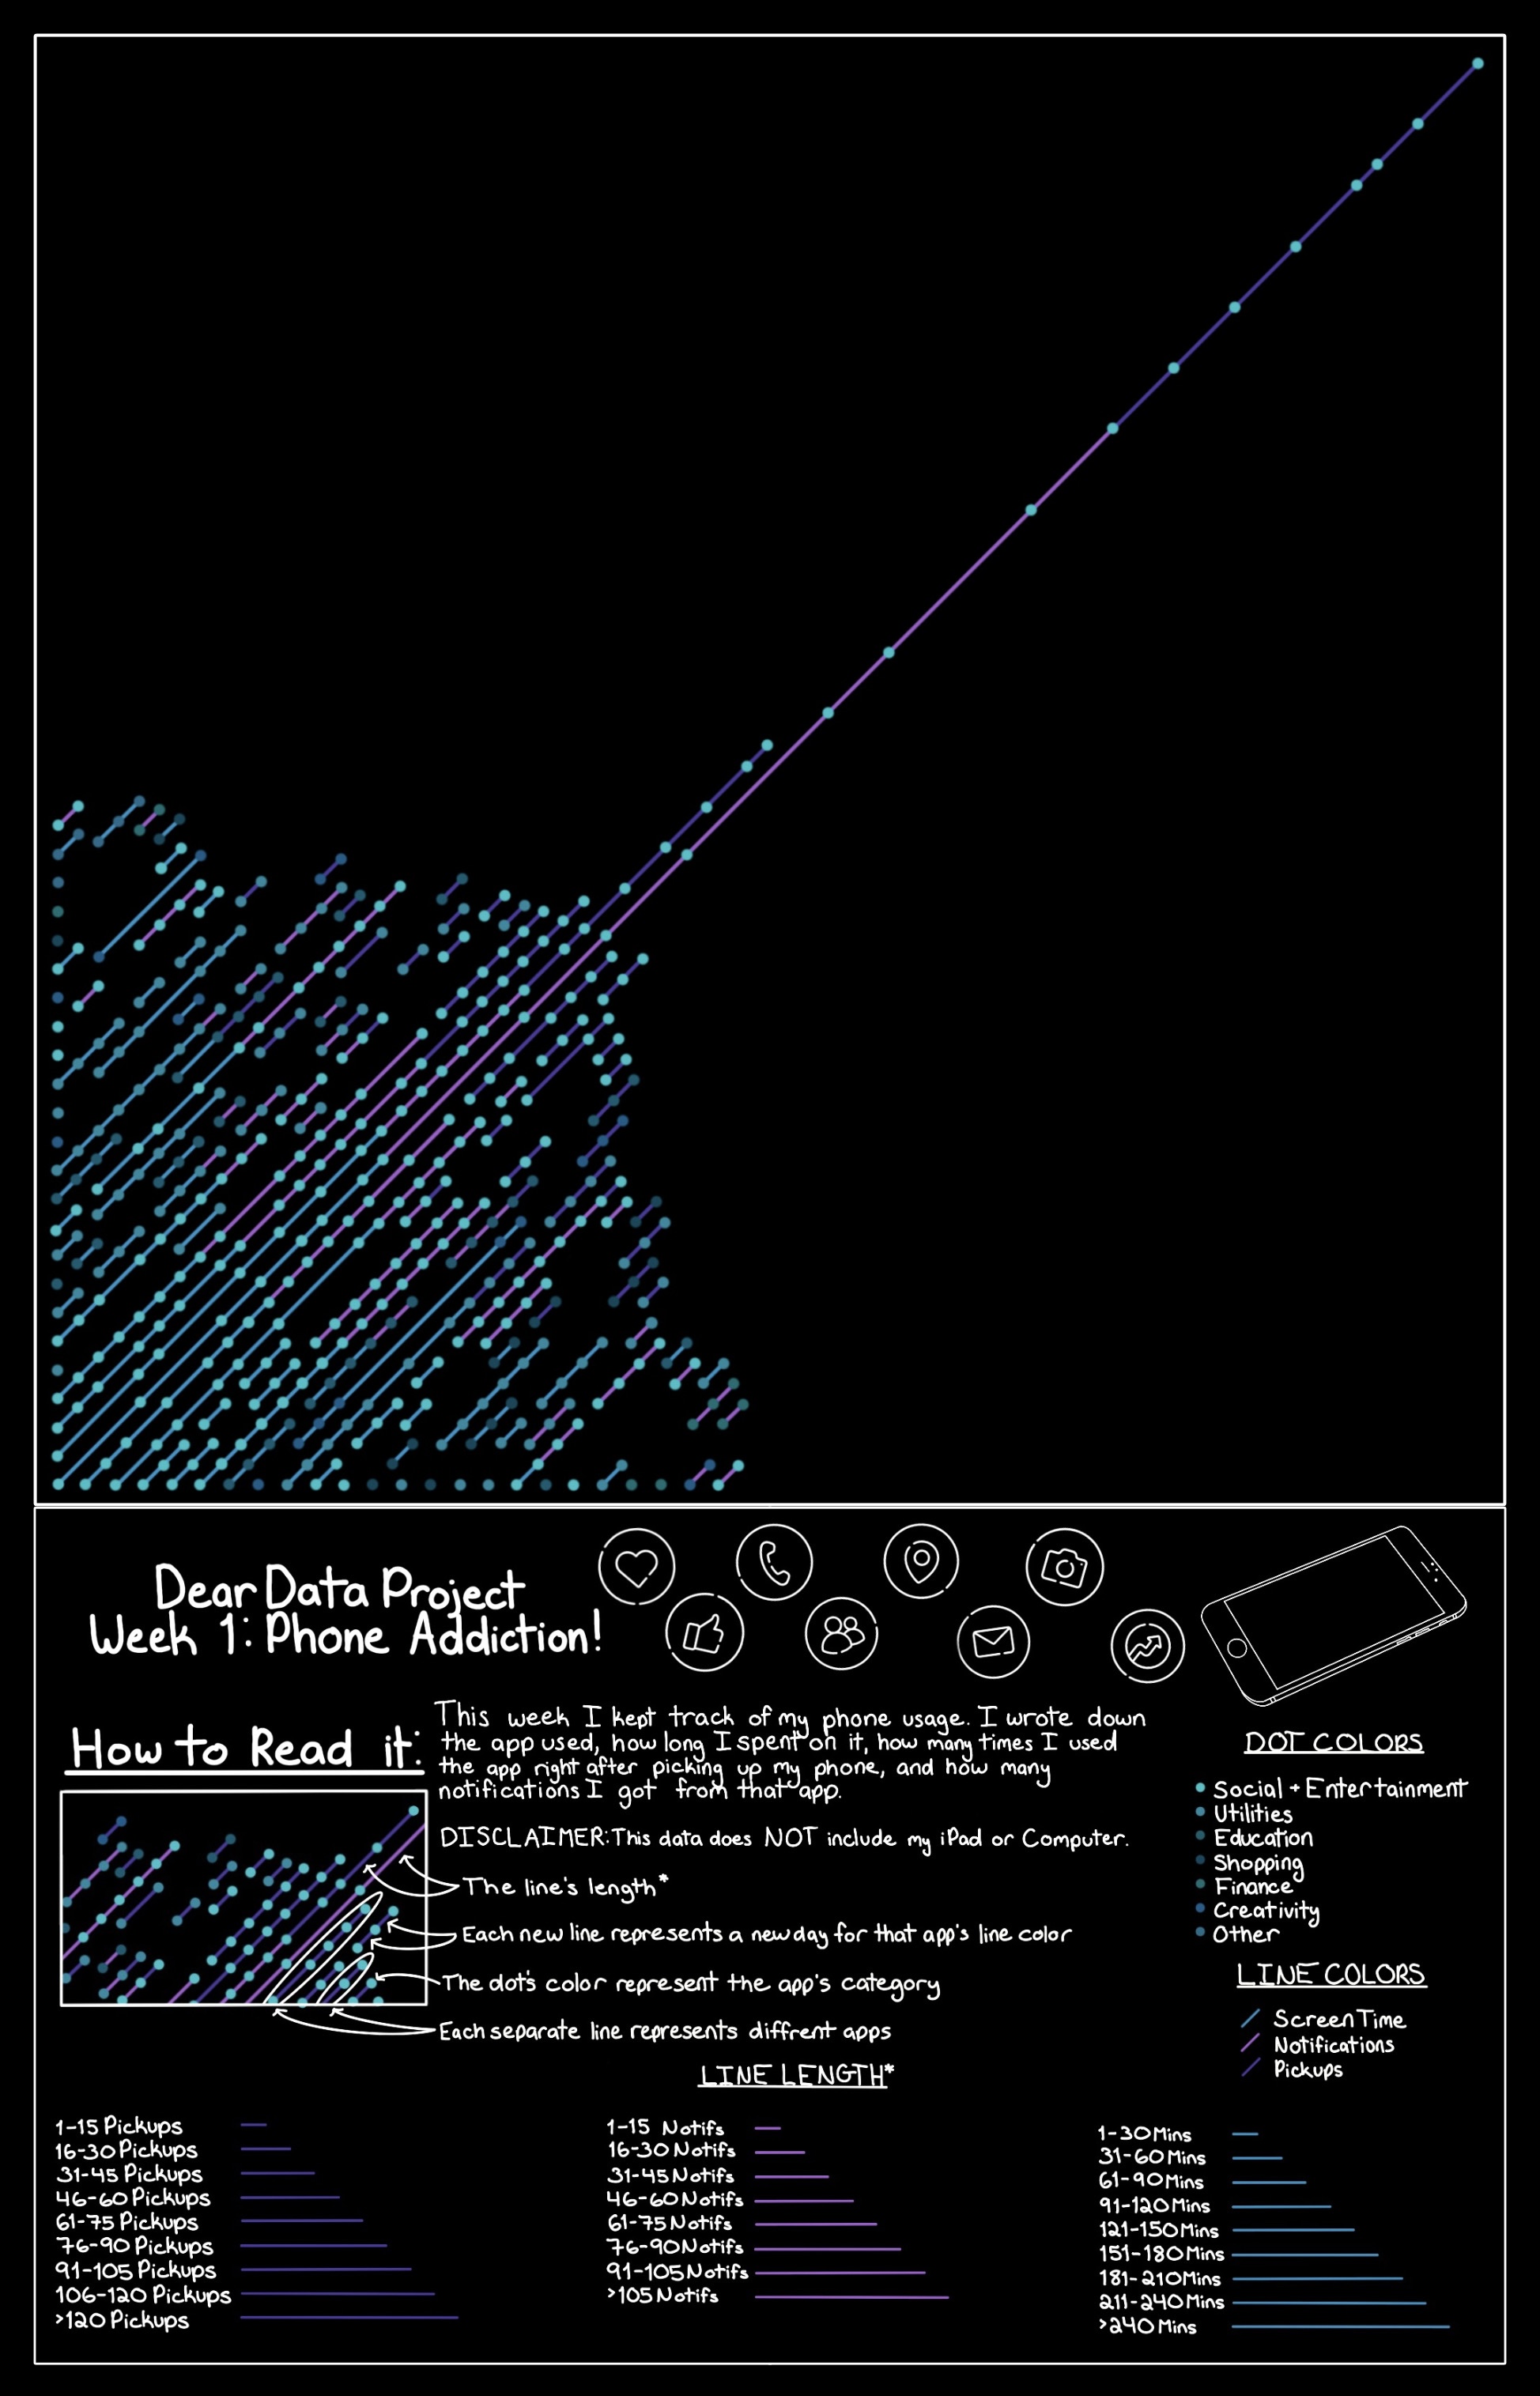 Dear Data Project
Week 1: Phone Addiction!
How to Read it:
This week I kept track of my phone usage. I wrote down
the app used, how long I spent on it, how many times I used
the app right after picking up my phone, and how many
notifications I got from that app.
DISCLAIMER: This data does NOT include my iPad or Computer.
The line's length*
Each new line represents a new day for that app's line color
The dot's color represent the app's category
Each separate line represents diffrent apps
DOT COLORS
Social + Entertainment
Utilities
Education
Shopping
Finance
Creativity
Other
LINE COLORS
ScreenTime
Notifications
Pickups
LINE LENGTH*
1-15 Pickups
16-30 Pickups
31-45 Pickups
46-60 Pickups
61-75 Pickups
76-90 Pickups
91-105 Pickups
106-120 Pickups
>120 Pickups
1-15 Notifs
16-30 Notifs
31-45 Notifs
46-60 Notifs
61-75 Notifs
76-90 Notifs
91-105 Notifs
>105 Notifs
1-30 Mins
31-60 Mins
61-90 Mins
91-120 Mins
121-150 Mins
151-180 Mins
181-210 Mins
211-240 Mins
>240 Mins